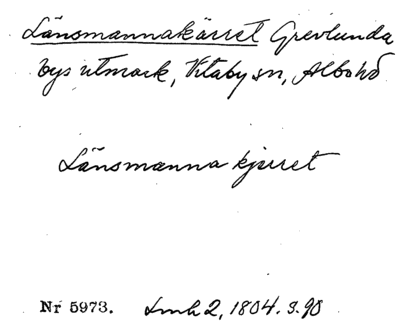 Länsmannakärret Grevlunda
bys utmark, Vitaby sn, Albo hd
Länsmanna kjerret
Nr 5973. Lmh 2, 1804. s. 90